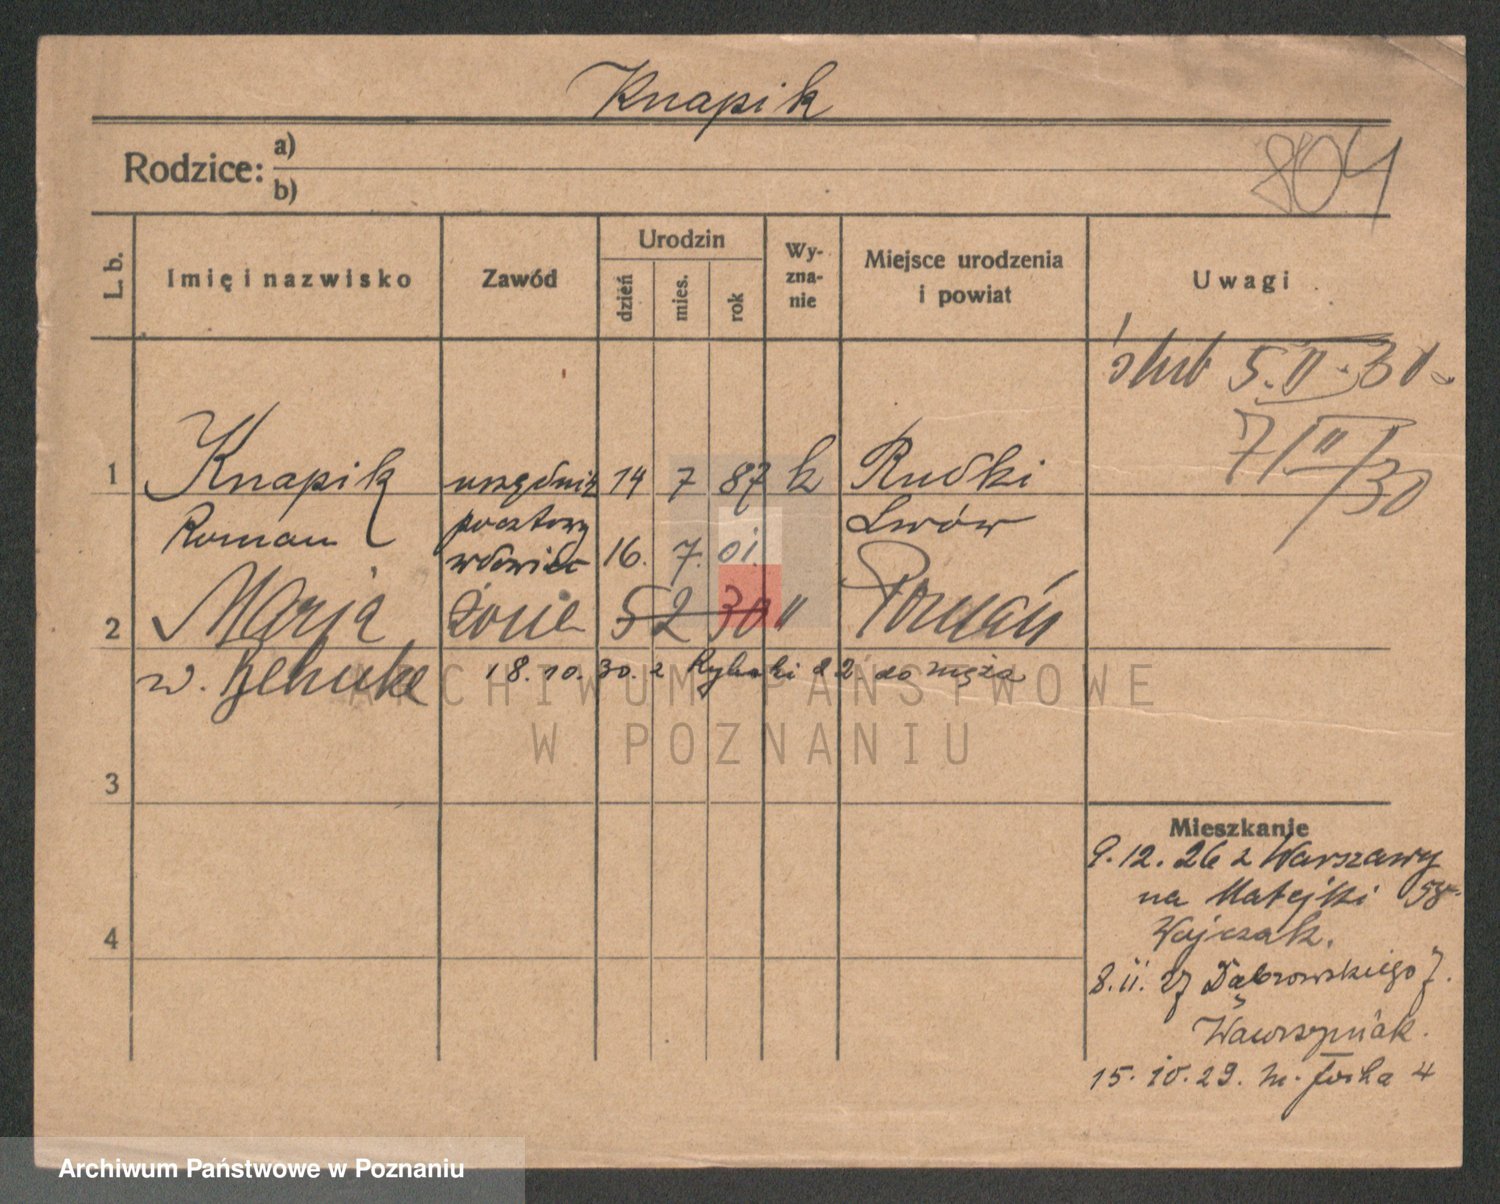 Knapik
Rodzice: a)
b)
804
L. b.
Imię i nazwisko
Zawód
Urodzin
dzień
mies.
rok
Wy-
zna-
nie
Miejsce urodzenia
i powiat
Uwagi
ślub 5.II.30
7/II/30
1 Knapik urzędnik 14 7 87 k Rudki
Roman pocztowy Lwów
wdowiec 16. 7. 01.
2 Marja żona 5 2 30 " Poznań
w. 18.10.30. z Rybaki 22 do męża
3
4
Mieszkanie
9.12.26 z Warszawy
na Matejki 58
Wojczak.
8.11.27 Dąbrowskiego 7.
Wawrzyniak.
15.10.29. M. Focha 4
ARCHIWUM PAŃSTWOWE
W POZNANIU
Archiwum Państwowe w Poznaniu